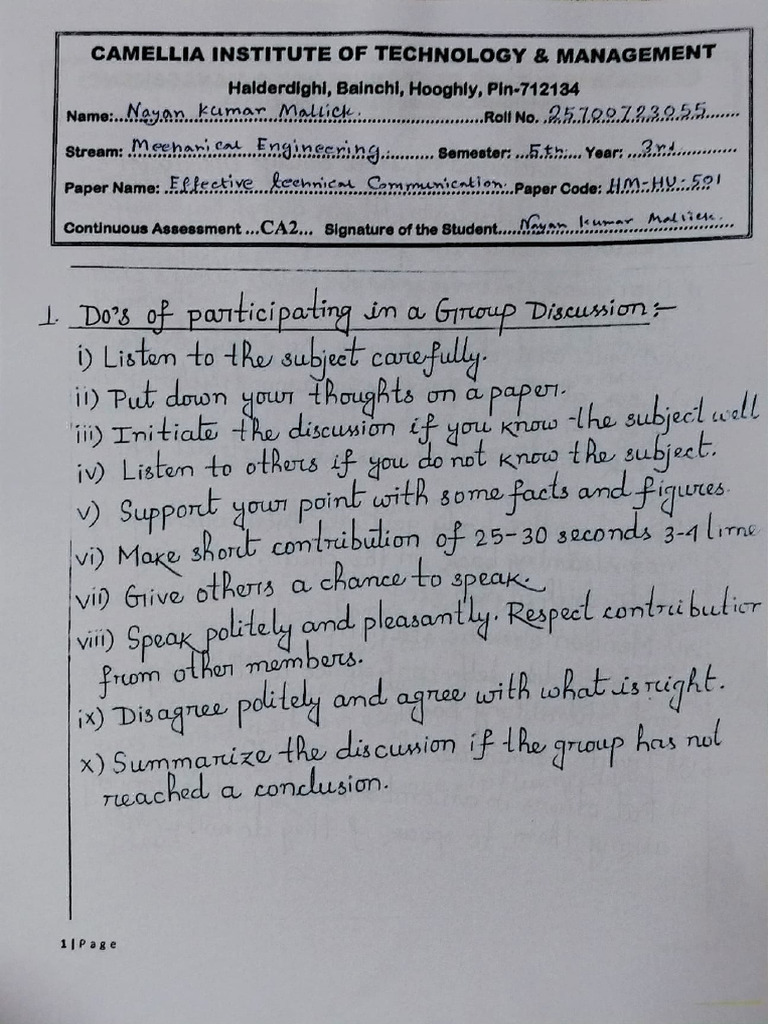 CAMELLIA INSTITUTE OF TECHNOLOGY & MANAGEMENT
Halderdighi, Bainchi, Hooghly, Pin-712134
Name:...Nayan Kumar Mallick.................Roll No. .25700723055......
Stream: Mechanical Engineering.......... Semester: ...5th.... Year: ...3rd............
Paper Name: Effective technical Communication. Paper Code: HM-HU-501
Continuous Assessment ...CA2... Signature of the Student.....Nayan Kumar Mallick.
1. Do's of participating in a Group Discussion:-
i) Listen to the subject carefully.
ii) Put down your thoughts on a paper.
iii) Initiate the discussion if you know the subject well
iv) Listen to others if you do not know the subject.
v) Support your point with some facts and figures.
vi) Make short contribution of 25-30 seconds 3-4 time
vii) Give others a chance to speak.
viii) Speak politely and pleasantly. Respect contribution
from other members.
ix) Disagree politely and agree with what is right.
x) Summarize the discussion if the group has not
reached a conclusion.
1 | Page